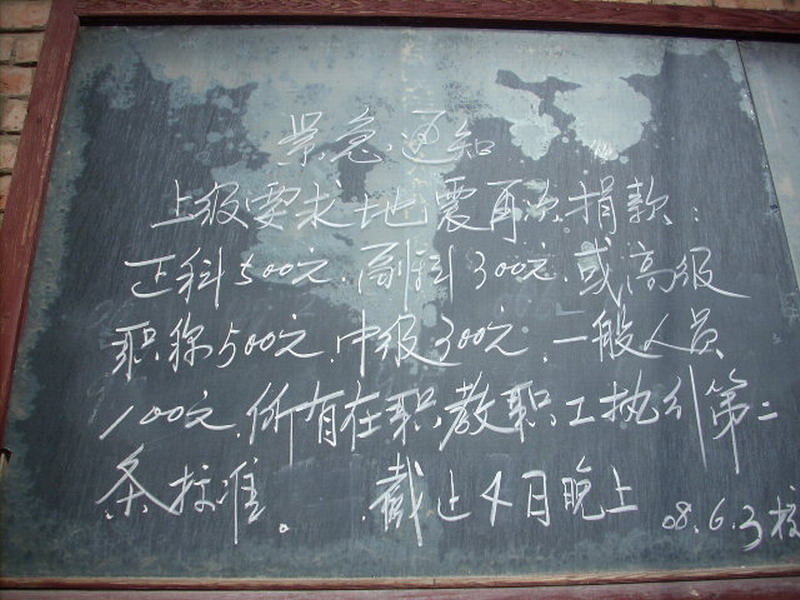 紧急通知
上级要求地震再次捐款：
正科500元.副科300元.或高级
职称500元.中级300元.一般人员
100元.所有在职教职工执行第二
条标准。 截止4日晚上
08.6.3校